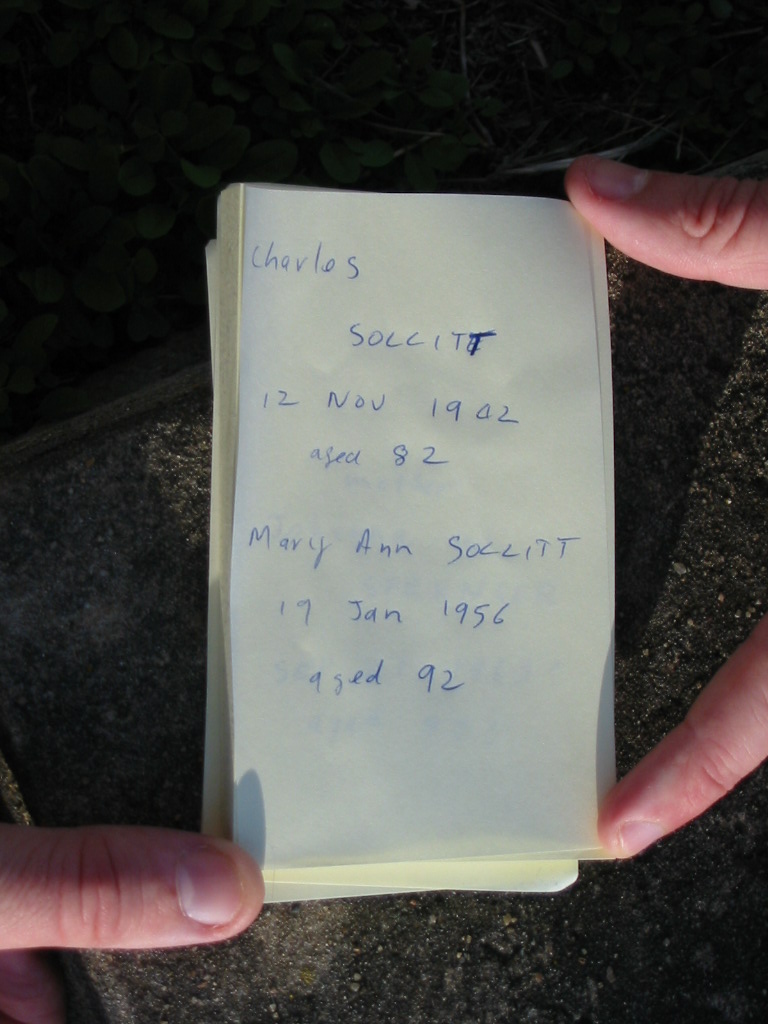 Charles
SOLLITT
12 Nov 1942
aged 82
Mary Ann SOLLITT
19 Jan 1956
aged 92